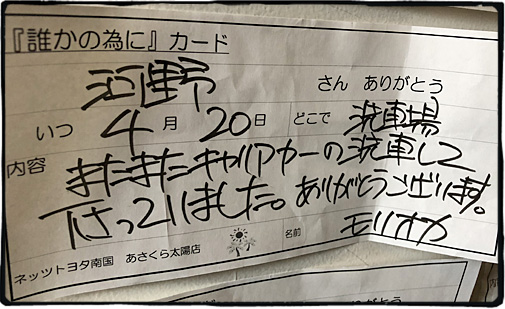 『誰かの為に』カード
河野 さん ありがとう
いつ 4月 20日 どこで 洗車場
内容 またまたキャリアカーの洗車して
下さっていました。ありがとうございます。
ネッツトヨタ南国 あさくら太陽店 名前 モリオカ